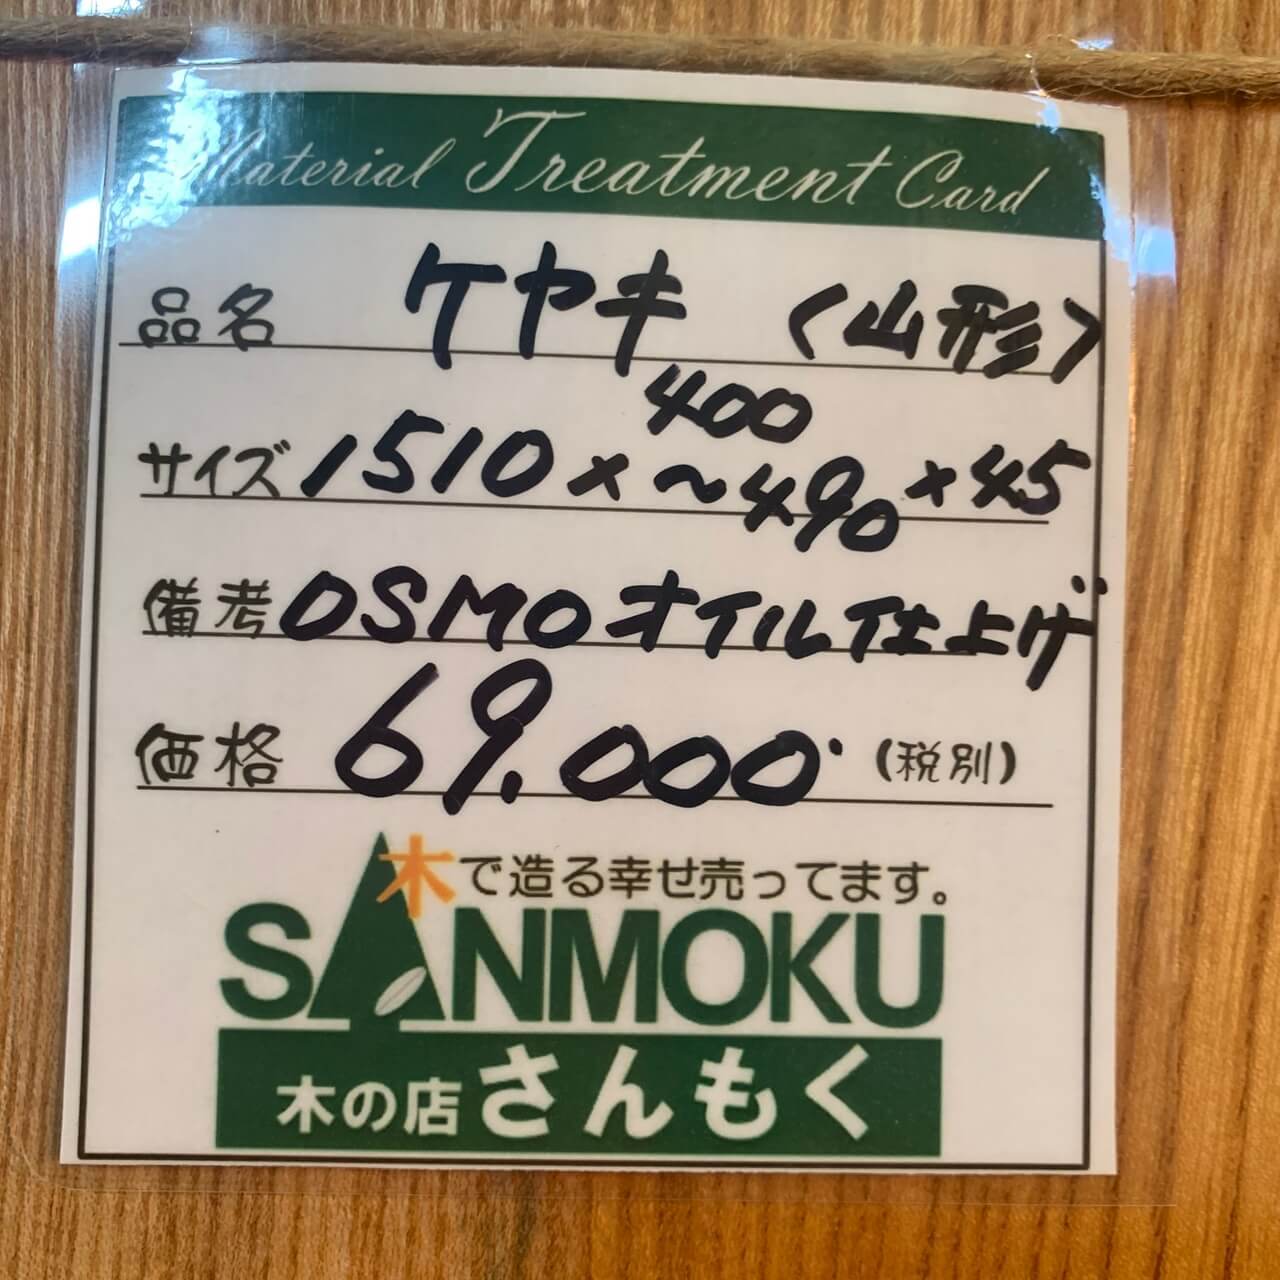 Material Treatment Card
品名 ケヤキ (山形)
サイズ 1510 × 400 ~ 490 × 45
備考 OSMO オイル仕上げ
価格 69,000. (税別)
木で造る幸せ売ってます。
SANMOKU
木の店 さんもく